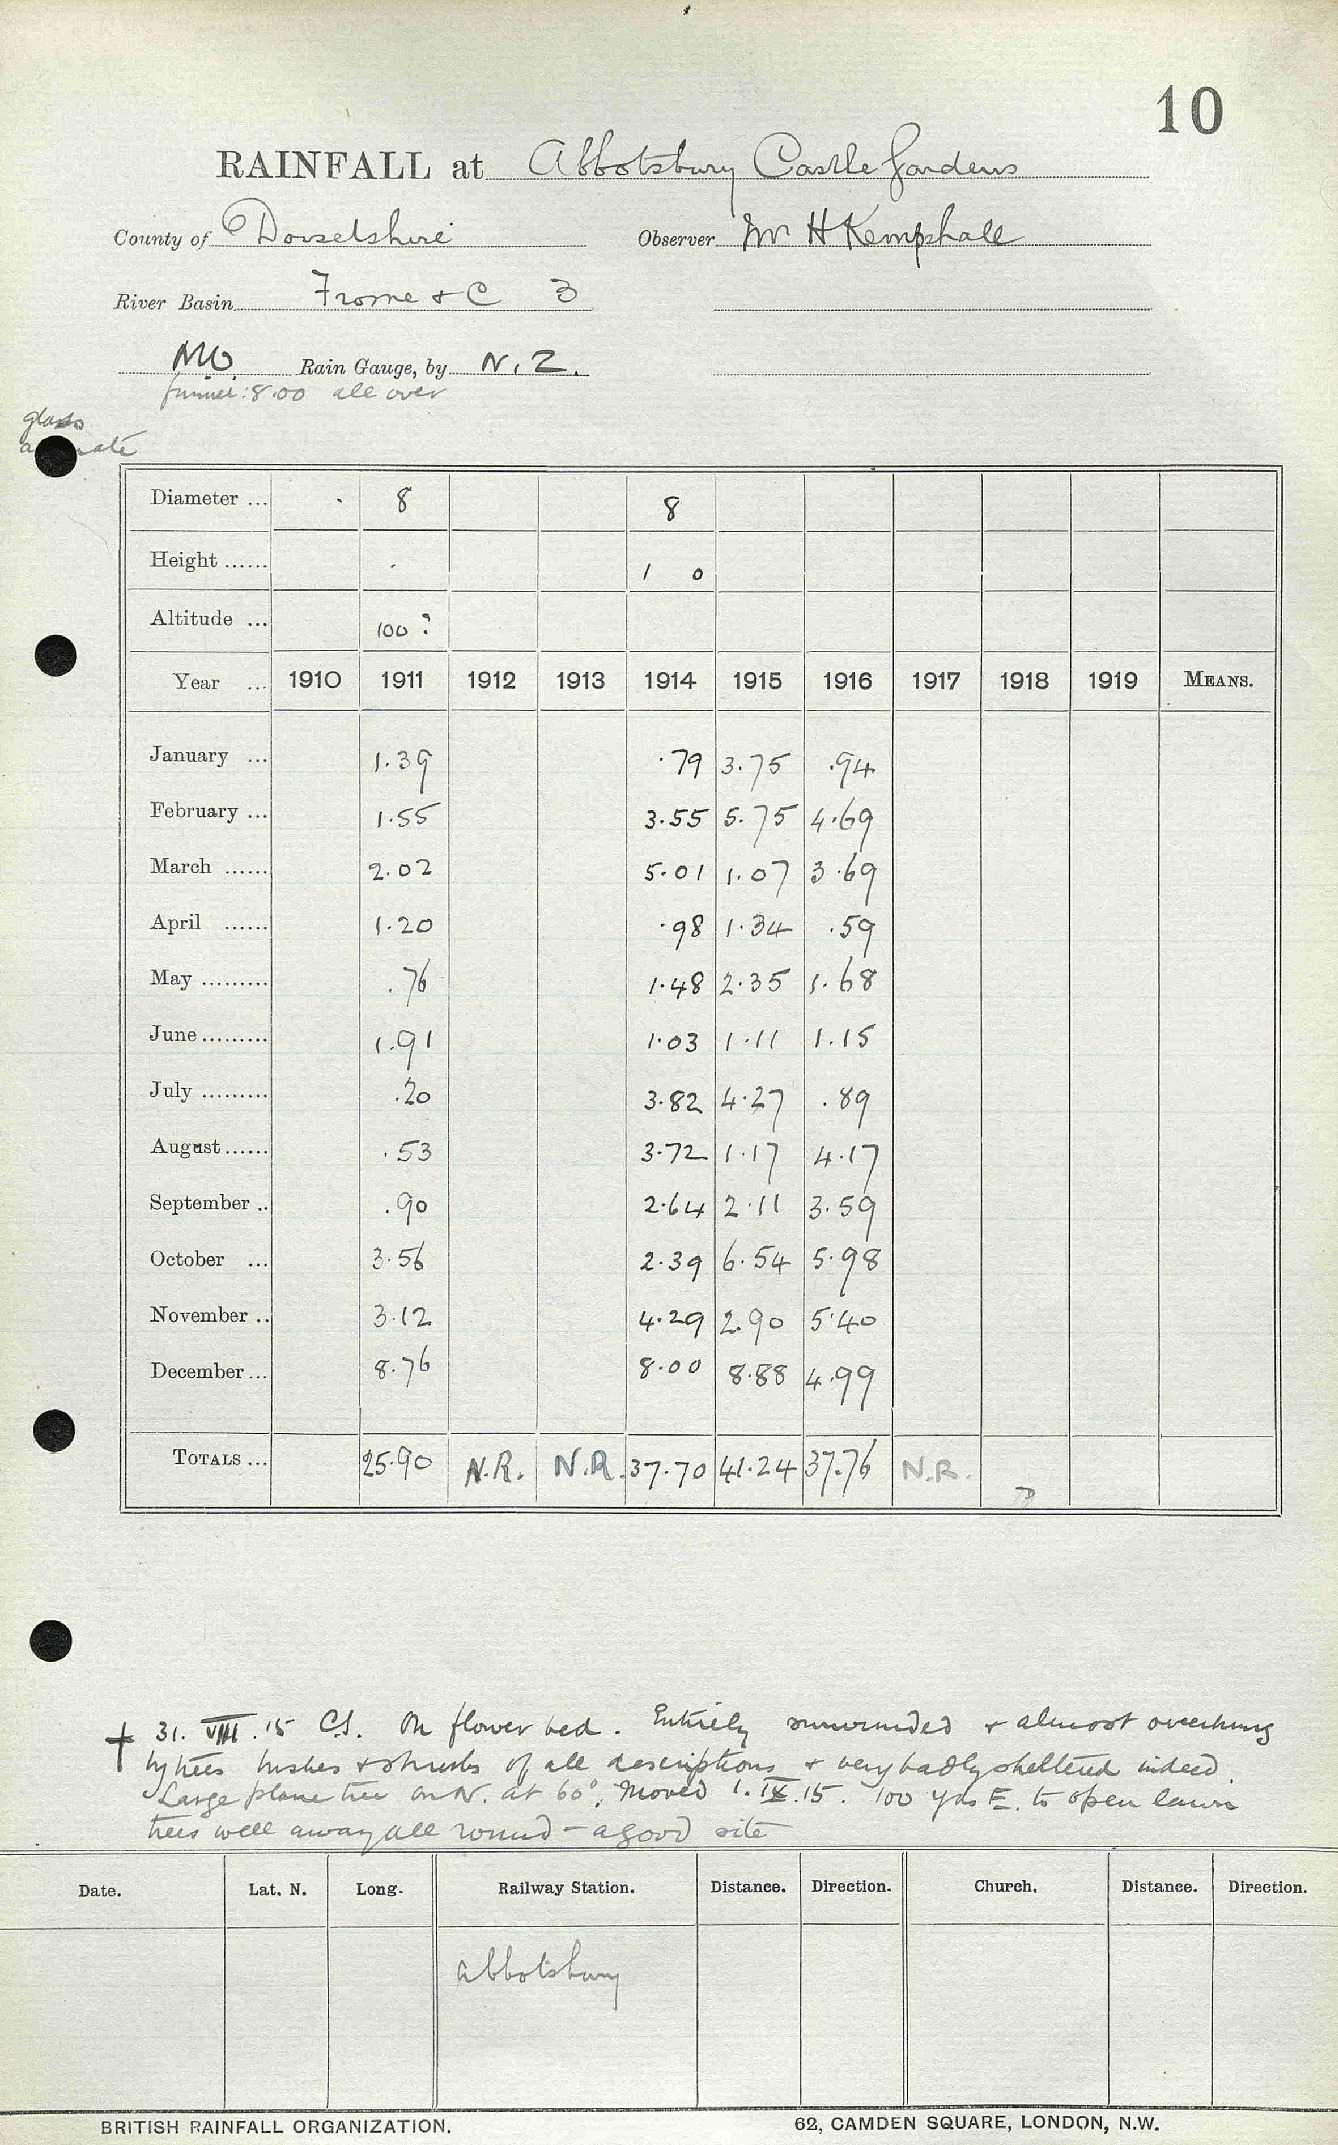 10
RAINFALL at Abbotsbury Castle Gardens
County of Dorsetshire Observer Mr H Kemphall
River Basin Frome & C 3
MO Rain Gauge, by N. Z.
funnel: 8.00 all over
glass
Diameter ... 8 8
Height ...... 1 0
Altitude ... 100 ?
Year ... 1910 1911 1912 1913 1914 1915 1916 1917 1918 1919 MEANS.
January ... 1.39 .79 3.75 .94
February ... 1.55 3.55 5.75 4.69
March ...... 2.02 5.01 1.07 3.69
April ...... 1.20 .98 1.34 .59
May ......... .76 1.48 2.35 1.68
June ......... 1.91 1.03 1.11 1.15
July ......... .20 3.82 4.27 .89
August ...... .53 3.72 1.17 4.17
September .. .90 2.64 2.11 3.59
October ... 3.56 2.39 6.54 5.98
November .. 3.12 4.29 2.90 5.40
December ... 8.76 8.00 8.88 4.99
TOTALS ... 25.90 N.R. N.R. 37.70 41.24 37.76 N.R.
† 31. VIII. 15 C.S. On flower bed. Entirely surrounded & almost overhung
by trees bushes & shrubs of all descriptions & very badly sheltered indeed.
Large plane tree on N. at 60°. Moved 1. IX. 15. 100 yds E. to open lawn
trees well away all round - a good site
Date. Lat. N. Long. Railway Station. Distance. Direction. Church. Distance. Direction.
Abbotsbury
BRITISH RAINFALL ORGANIZATION. 62, CAMDEN SQUARE, LONDON, N.W.